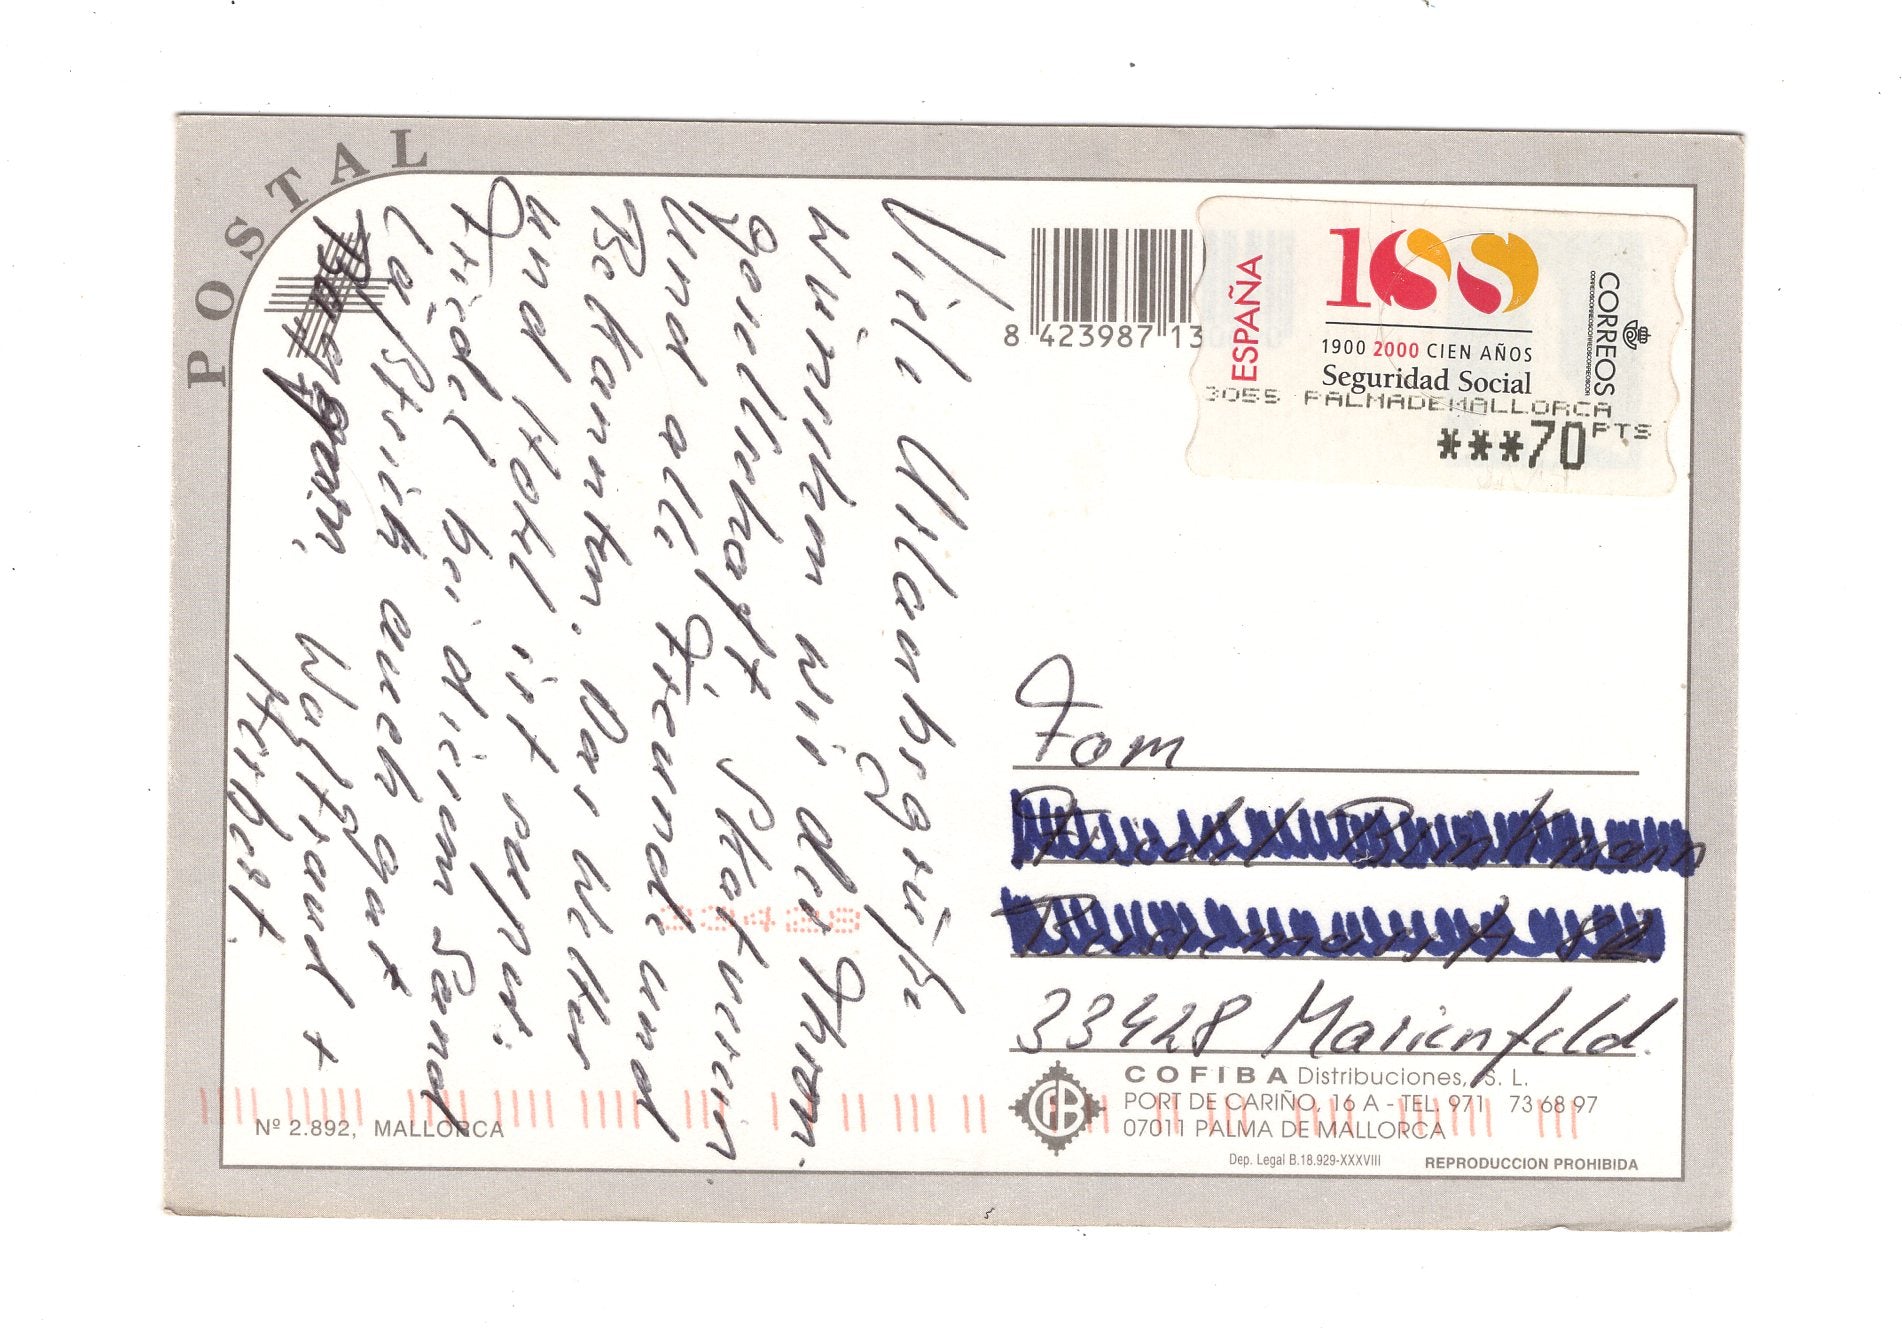 POSTAL
Viele Urlaubsgrüße
wünschen wir der Thron-
gesellschaft, Skatverein
und alle Freunde und
Bekannten. Das Wetter
und Hotel ist super.
Friedel bei diesem Sand
läßt sich auch gut
Waltraud +
Herbert.
8 423987 13
ESPAÑA
100
1900 2000 CIEN AÑOS
Seguridad Social
CORREOS
3055 PALMADEMALLORCA
***70 PTS
Fam
33428 Marienfeld.
COFIBA Distribuciones, S. L.
PORT DE CARIÑO, 16 A - TEL. 971 73 68 97
07011 PALMA DE MALLORCA
Dep. Legal B.18.929-XXXVIII
REPRODUCCION PROHIBIDA
Nº 2.892, MALLORCA